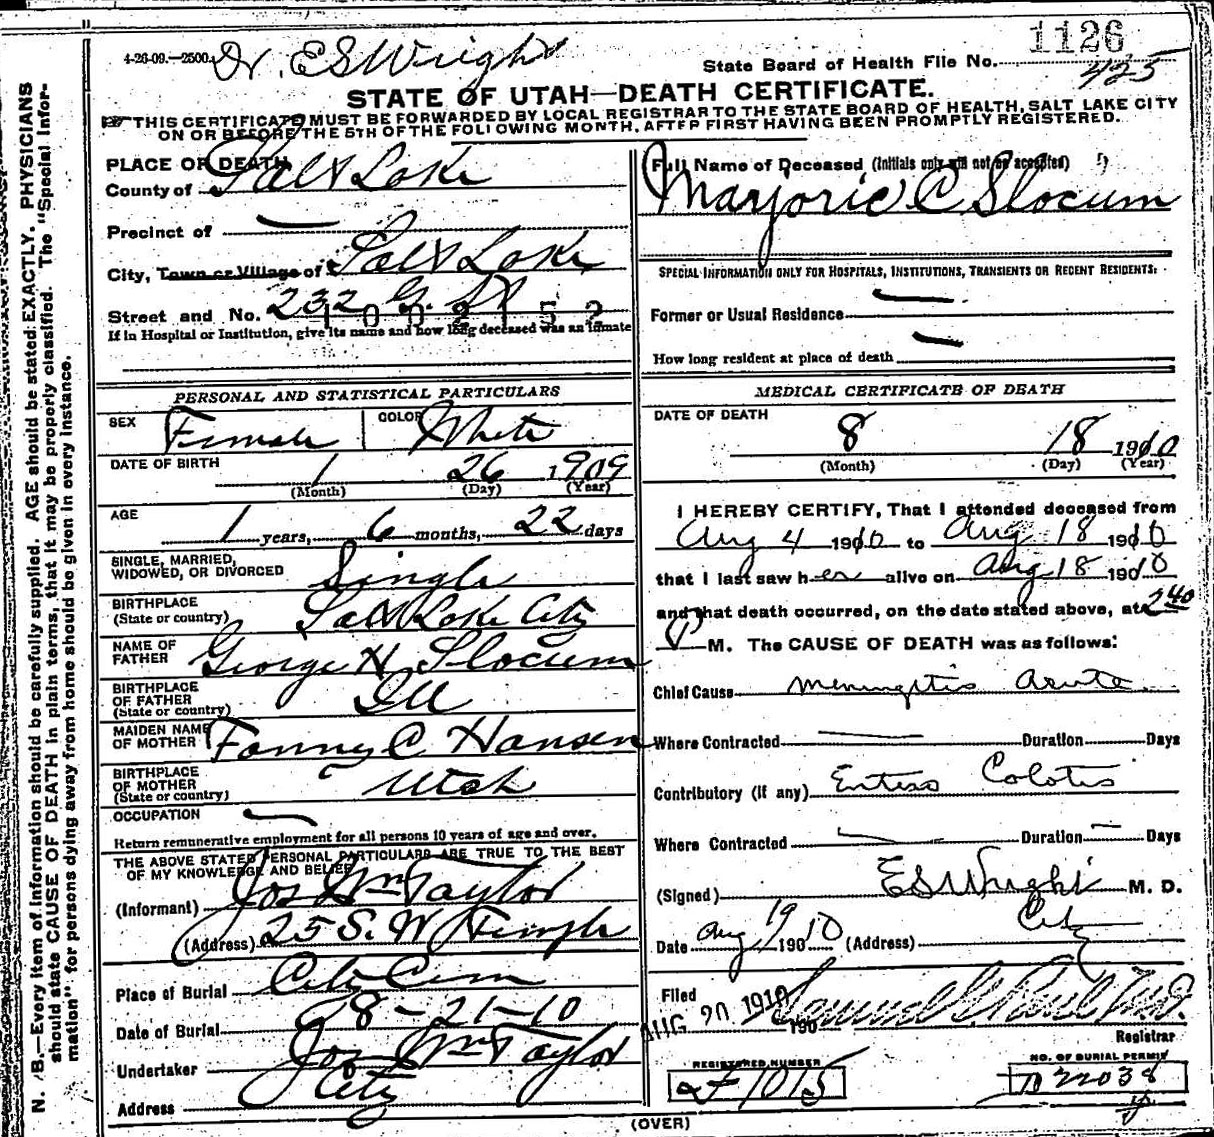 1126
4-26-09.—2500. Dr. E S Wright
State Board of Health File No. 425
STATE OF UTAH—DEATH CERTIFICATE.
THIS CERTIFICATE MUST BE FORWARDED BY LOCAL REGISTRAR TO THE STATE BOARD OF HEALTH, SALT LAKE CITY
ON OR BEFORE THE 5TH OF THE FOLLOWING MONTH, AFTER FIRST HAVING BEEN PROMPTLY REGISTERED.
N. B.—Every item of information should be carefully supplied. AGE should be stated EXACTLY. PHYSICIANS
should state CAUSE OF DEATH in plain terms, that it may be properly classified. The "Special Infor-
mation" for persons dying away from home should be given in every instance.
PLACE OF DEATH
County of Salt Lake
Precinct of —
City, Town or Village of Salt Lake
Street and No. 232 G. St
If in Hospital or Institution, give its name and how long deceased was an inmate
PERSONAL AND STATISTICAL PARTICULARS
SEX Female COLOR White
DATE OF BIRTH 1 26 1909
(Month) (Day) (Year)
AGE 1 years, 6 months, 22 days
SINGLE, MARRIED,
WIDOWED, OR DIVORCED Single
BIRTHPLACE
(State or country) Salt Lake City
NAME OF
FATHER George H Slocum
BIRTHPLACE
OF FATHER
(State or country) Ill
MAIDEN NAME
OF MOTHER Fanny C Hansen
BIRTHPLACE
OF MOTHER
(State or country) Utah
OCCUPATION —
Return remunerative employment for all persons 10 years of age and over.
THE ABOVE STATED PERSONAL PARTICULARS ARE TRUE TO THE BEST
OF MY KNOWLEDGE AND BELIEF
(Informant) Jos Wm Taylor
(Address) 25 S. W Temple
Place of Burial City Cem
Date of Burial 8-21-10
Undertaker Jos Wm Taylor
Address City
Full Name of Deceased, (Initials only will not be accepted)
Marjorie C Slocum
SPECIAL INFORMATION ONLY FOR HOSPITALS, INSTITUTIONS, TRANSIENTS OR RECENT RESIDENTS:
Former or Usual Residence —
How long resident at place of death —
MEDICAL CERTIFICATE OF DEATH
DATE OF DEATH
8 18 1910
(Month) (Day) (Year)
I HEREBY CERTIFY, That I attended deceased from
Aug 4 1910 to Aug 18 1910
that I last saw her alive on Aug 18 1910
and that death occurred, on the date stated above, at 2 40
P M. The CAUSE OF DEATH was as follows:
Chief Cause Meningitis Acute
Where Contracted — Duration Days
Contributory (if any) Entero Colitis
Where Contracted — Duration — Days
(Signed) E S Wright M. D.
Date Aug 19 1910 (Address) City
Filed AUG 20 1910 190 Samuel G. Paul M.D.
Registrar
REGISTERED NUMBER
1015
NO. OF BURIAL PERMIT
22038
(OVER)